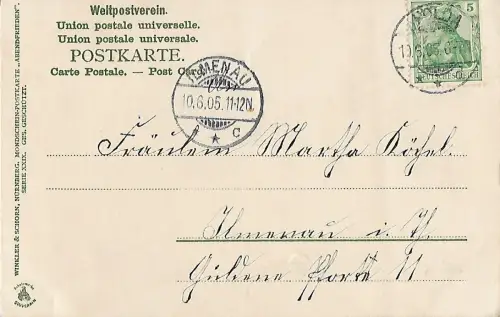 Weltpostverein.
Union postale universelle.
Union postale universale.
POSTKARTE.
Carte Postale. — Post Card.
ILMENAU
10.6.05. 11-12N.
* c
APOLDA
10.6.05.
5
DEUTSCHES REICH
Fräulein Martha Köchel.
Ilmenau i. Th.
Güldene Pforte 11
WINKLER & SCHORN, NÜRNBERG, MONDSCHEIN-POSTKARTE „ABENDFRIEDEN".
SERIE XXIX. GES. GESCHÜTZT.